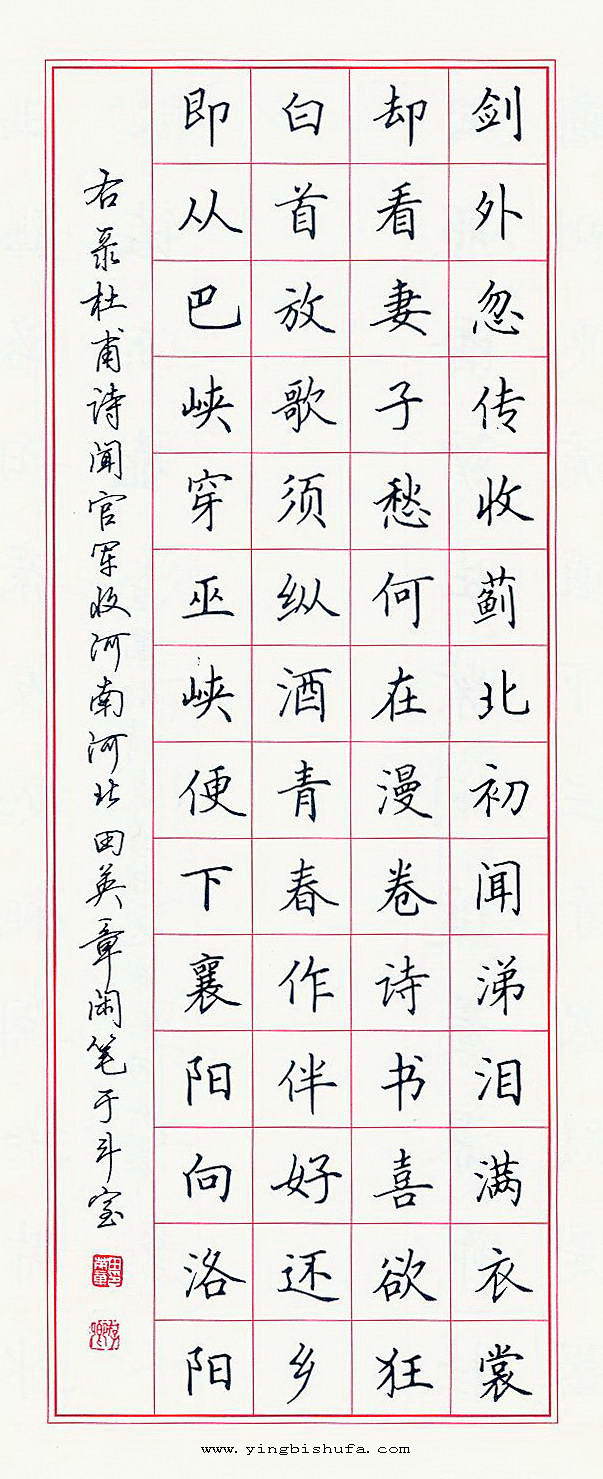 剑外忽传收蓟北初闻涕泪满衣裳
却看妻子愁何在漫卷诗书喜欲狂
白首放歌须纵酒青春作伴好还乡
即从巴峡穿巫峡便下襄阳向洛阳
右录杜甫诗闻官军收河南河北田英章闲笔于斗室
www.yingbishufa.com